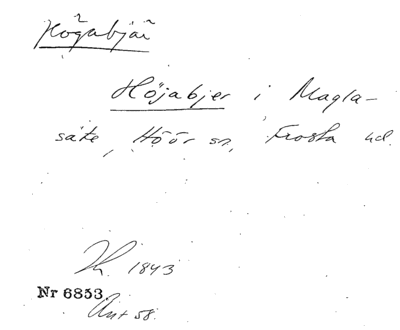 Högabjär
Höjabjer i Magla-
säte, Höör sn, Frosta hd.
1843
Nr 6853
Ant 58.